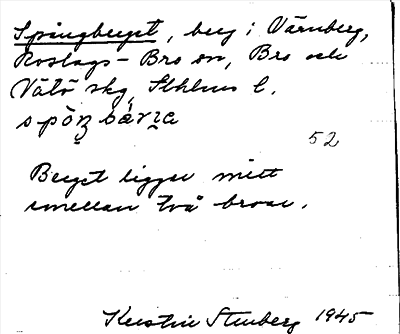 Spingberget, berg i Värnberg,
Roslags-Bro sn, Bro och
Vätö skg, Sthlms l.
52
Berget ligger mitt
emellan två broar.
Kerstin Stenberg 1945